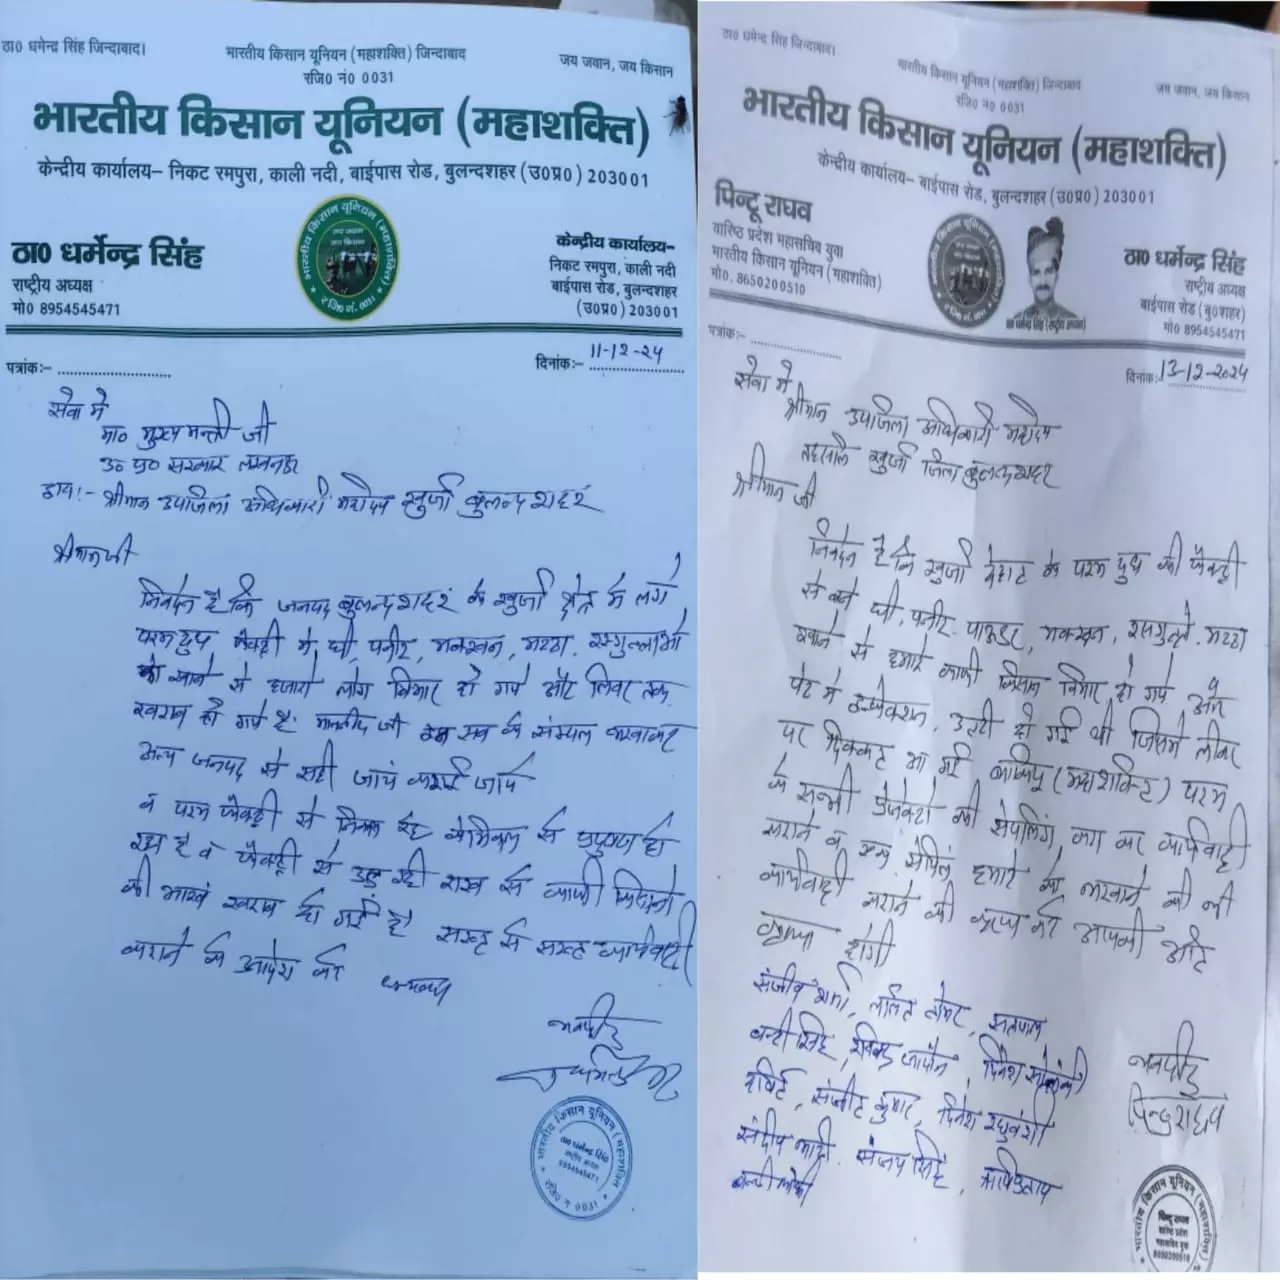 ठा० धमेन्द्र सिंह जिन्दाबाद।
भारतीय किसान यूनियन (महाशक्ति) जिन्दाबाद
जय जवान, जय किसान
रजि० नं० 0031
भारतीय किसान यूनियन (महाशक्ति)
केन्द्रीय कार्यालय– निकट रमपुरा, काली नदी, बाईपास रोड, बुलन्दशहर (उ०प्र०) 203001
ठा० धर्मेन्द्र सिंह
राष्ट्रीय अध्यक्ष
मो० 8954545471
केन्द्रीय कार्यालय–
निकट रमपुरा, काली नदी
बाईपास रोड, बुलन्दशहर
(उ०प्र०) 203001
पत्रांक:–
दिनांक:– 11-12-24
सेवा में
मा० मुख्य मन्त्री जी
उ० प्र० सरकार लखनऊ
श्रीमान उपजिला अधिकारी महोदय खुर्जा बुलन्दशहर
श्रीमानजी
निवेदन है कि जनपद बुलन्दशहर के खुर्जा क्षेत्र में लगे
परम दुध फैक्ट्री में घी, पनीर, मक्खन, मट्ठा, रसगुल्लाओ
को खाने से हजारो लोग बिमार हो गये और लिवर तक
खराब हो गये है। जी इन सब के सैम्पल भरवाकर
अन्य जनपद से सही जांच कराई जाये
व परम फैक्ट्री से निकल रहे केमिकल से प्रदुषण हो
रहा है व फैक्ट्री से उड़ रही राख से काफी किसानो
की आंखे खराब हो गई है सख्त से सख्त कार्यवाही
कराने की कर धन्यवाद
भवदीय
भारतीय किसान यूनियन (महाशक्ति)
ठा० धर्मेन्द्र सिंह
राष्ट्रीय अध्यक्ष
8954545471
रजि० नं० 0031
ठा० धमेन्द्र सिंह जिन्दाबाद।
भारतीय किसान यूनियन (महाशक्ति) जिन्दाबाद
जय जवान, जय किसान
रजि० नं० 0031
भारतीय किसान यूनियन (महाशक्ति)
केन्द्रीय कार्यालय– बाईपास रोड, बुलन्दशहर (उ०प्र०) 203001
पिन्टू राघव
वारिष्ठ प्रदेश महासचिव युवा
भारतीय किसान यूनियन (महाशक्ति)
मो०. 8650200510
ठा० धर्मेन्द्र सिंह
राष्ट्रीय अध्यक्ष
बाईपास रोड (बु०शहर)
मो० 8954545471
पत्रांक:–
दिनांक: 13-12-2024
सेवा में
श्रीमान उपजिला अधिकारी महोदय
तहसील खुर्जा जिला बुलन्दशहर
श्रीमान जी
निवेदन है कि खुर्जा देहात के परम दुध की फैक्ट्री
से बने घी, पनीर, पाऊडर, मक्खन, रसगुल्ले, मट्ठा
खाने से हमारे काफी किसान बिमार हो गये और
पेट में इन्फेक्शन, उल्टी हो गई थी जिसमे लीवर
पर दिक्कत आ गई भाकियू (महाशक्ति) परम
के सभी प्रोजेक्टो की सेंपलिंग करा कर कार्यवाही
कराने व एक सेंपिल हमारे से भरवाने की भी
कार्यवाही कराने की कृपा करे आपकी अति
कृपा होगी
संजीव शर्मा, ललित तोमर, सतपाल
बन्टी सिंह, दिनेश सोलंकी
संजीत कुमार, दिनेश रघुवंशी
संदीप भाटी, संजय सिंह
भवदीय
पिन्टू राघव
भारतीय किसान यूनियन (महाशक्ति)
पिन्टू राघव
वारिष्ठ प्रदेश
महासचिव युवा
8650200510